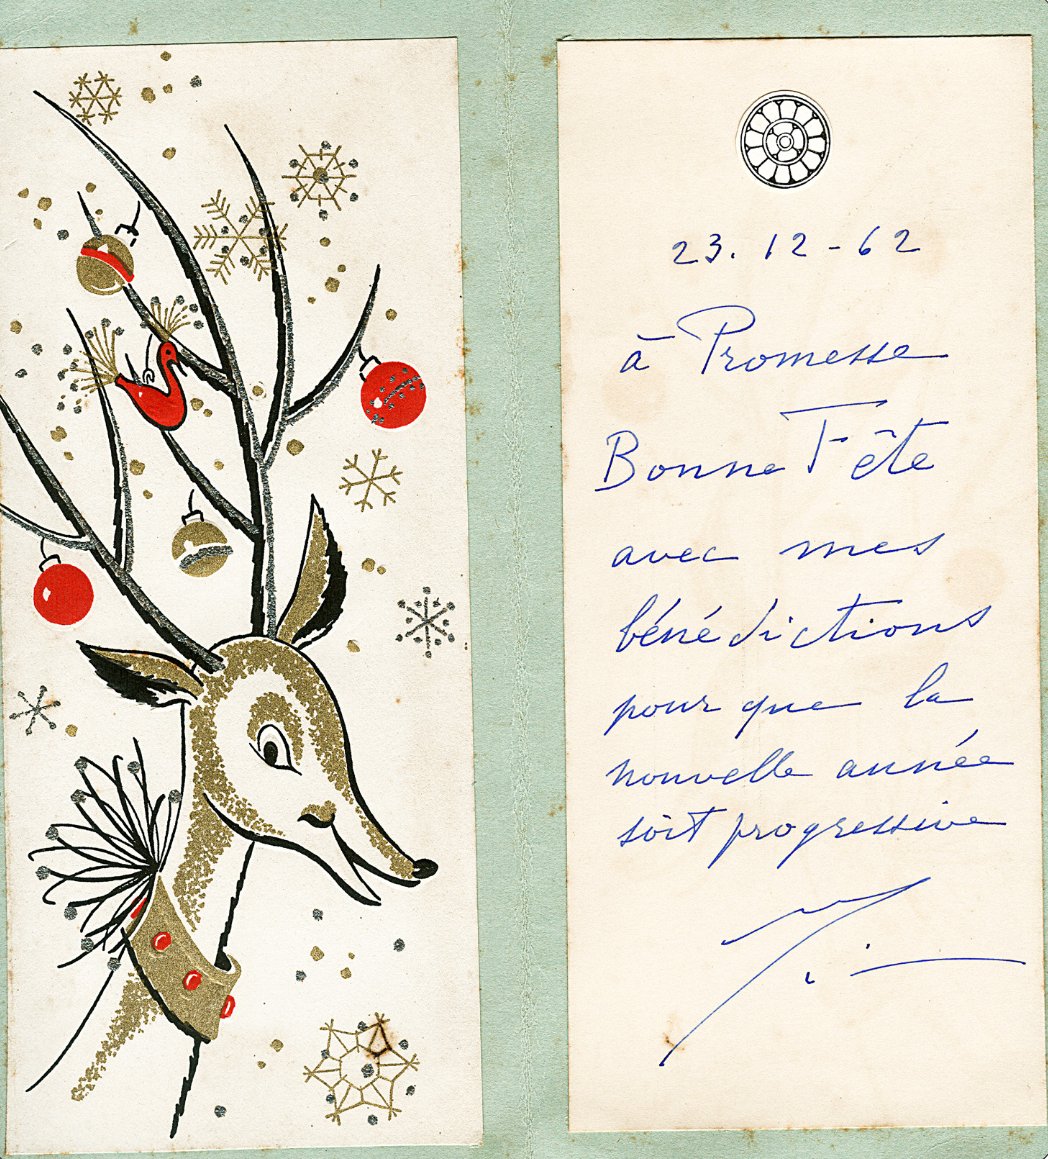 23.12-62
à Promesse
Bonne Fête
avec mes
bénédictions
pour que la
nouvelle année
soit progressive